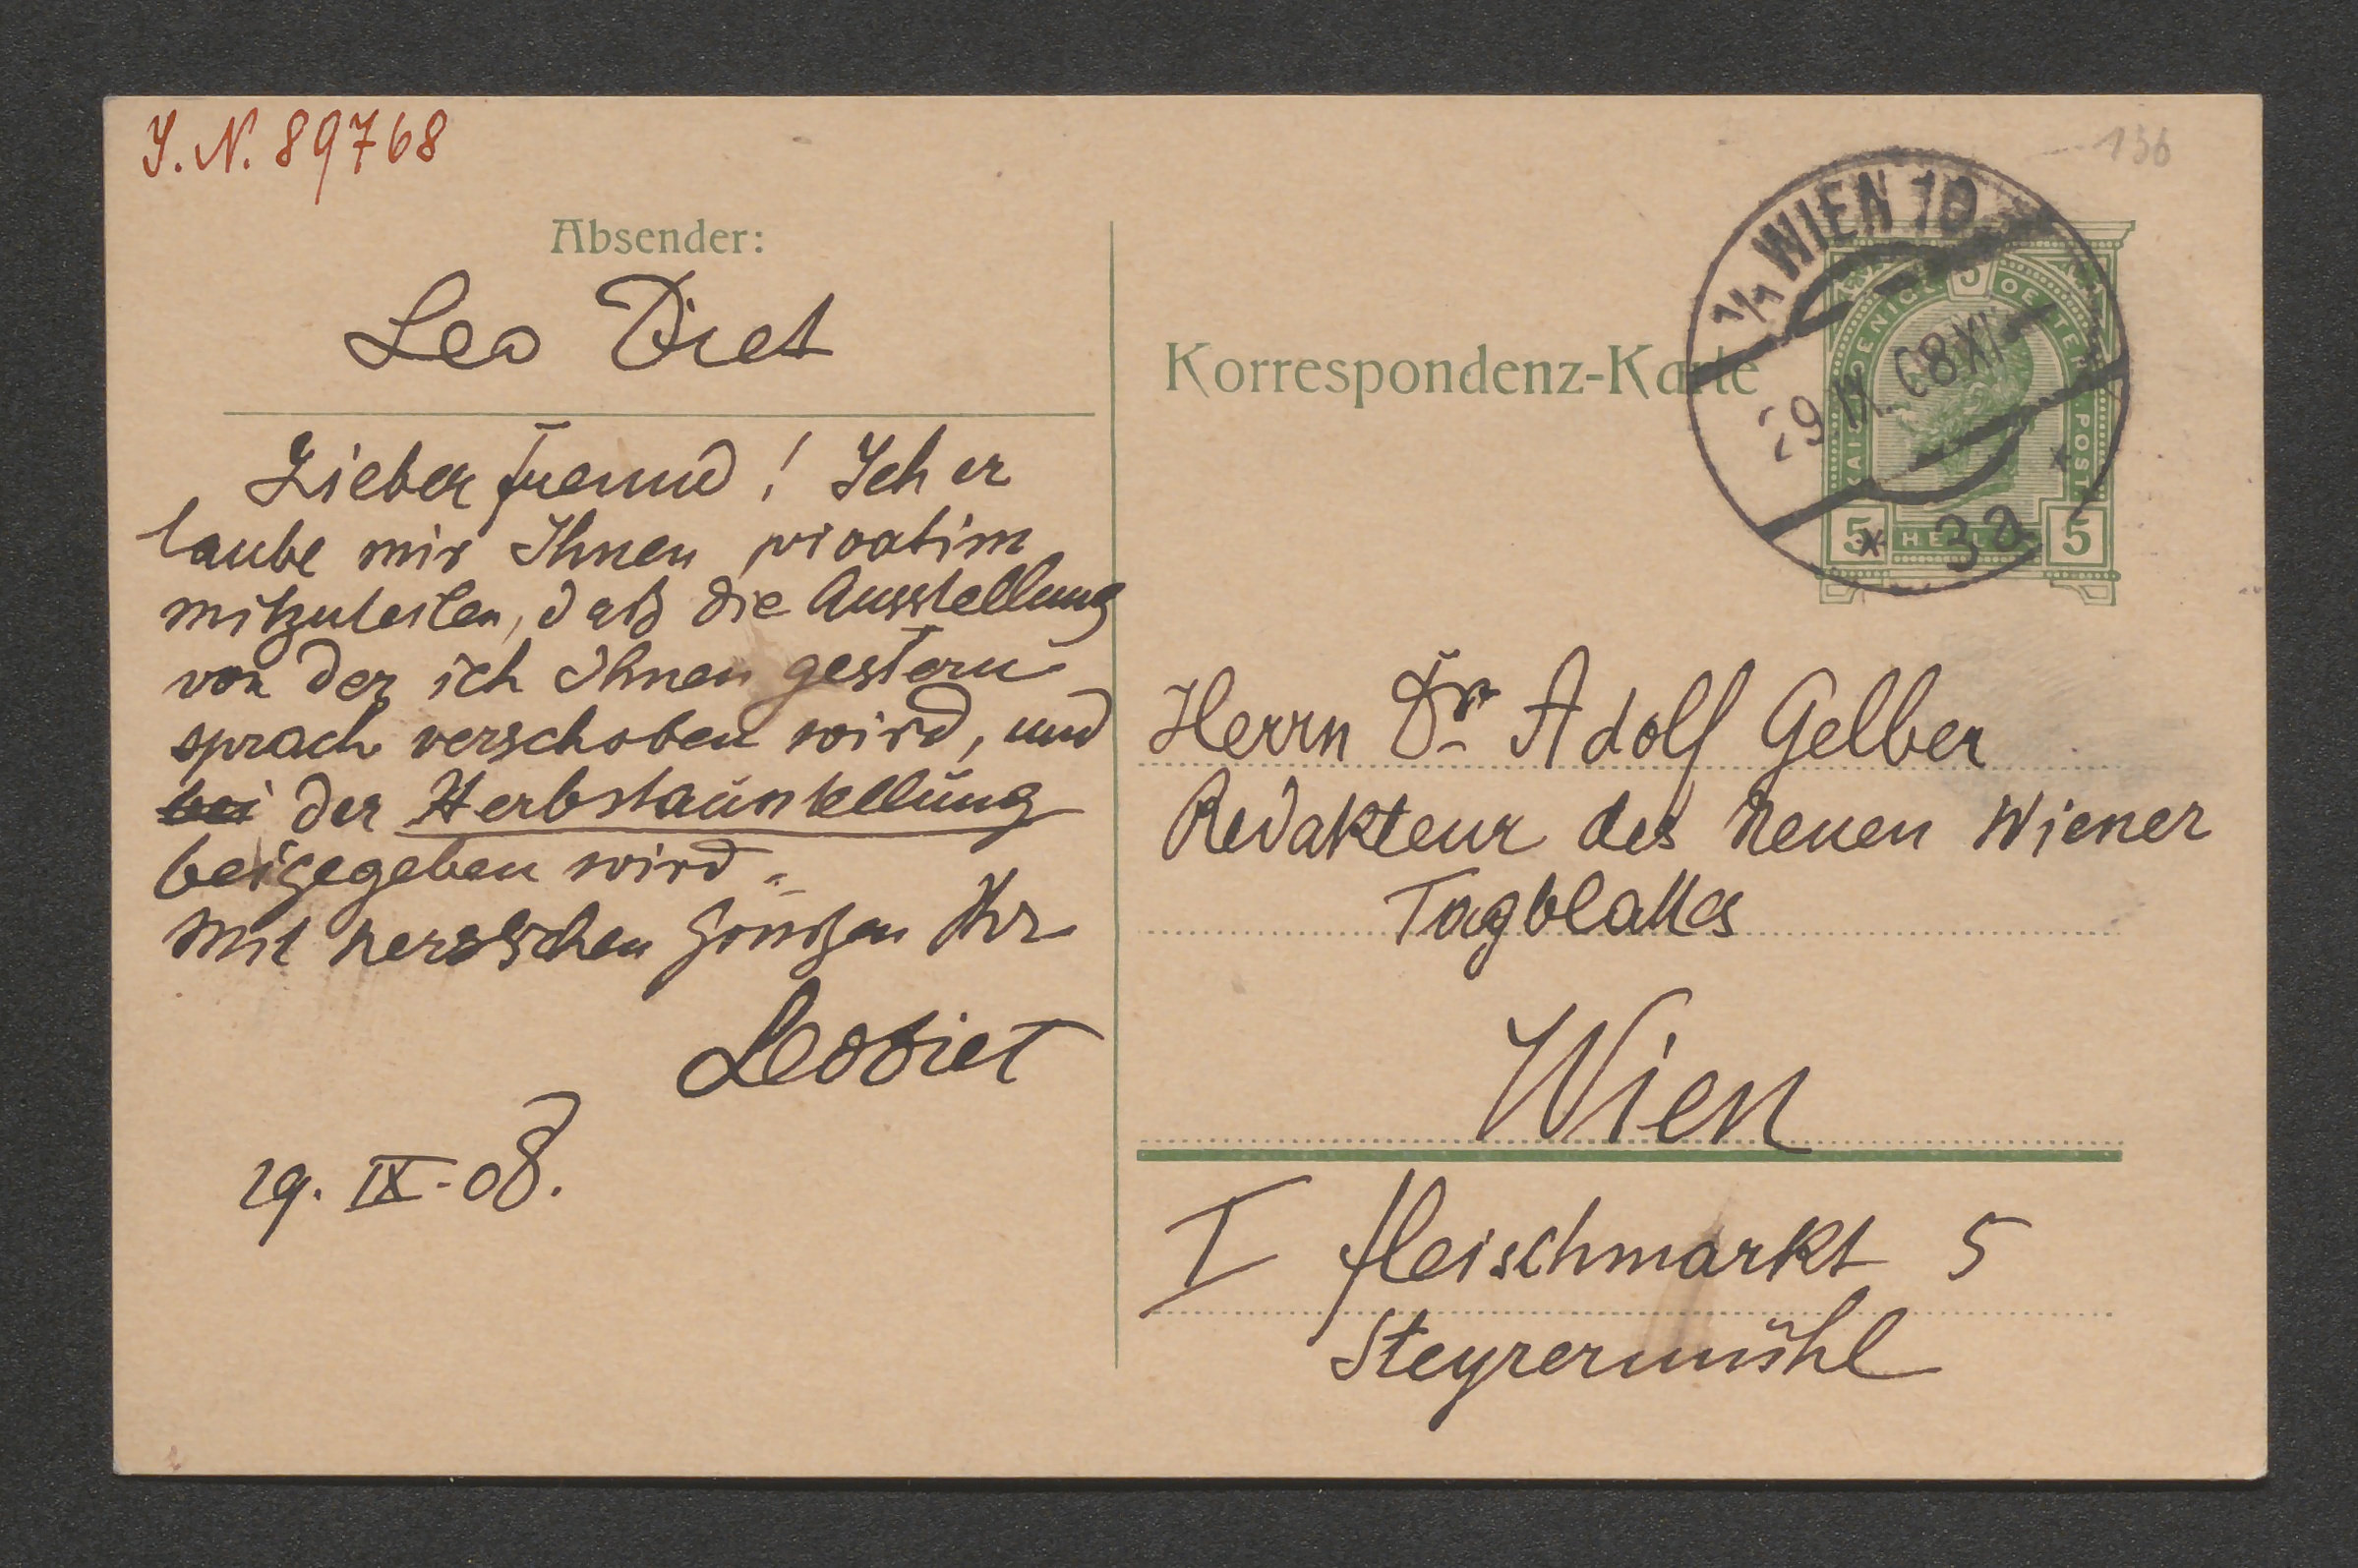 I. N. 89768
136
Absender:
Leo Diet
Lieber Freund! Ich er
laube mir Ihnen privatim
mitzuteilen, daß die Ausstellung
von der ich Ihnen gestern
sprach verschoben wird, und
bei der Herbstausstellung
beigegeben wird.
Mit herzlichen Grüßen Ihr
Leo Diet
29. IX. 08.
1/1 WIEN 10
29 IX 08 XI
* 3a *
5
5 HELLER 5
Korrespondenz-Karte
Herrn Dr Adolf Gelber
Redakteur des Neuen Wiener
Tagblattes
Wien
I Fleischmarkt 5
Steyrermühl